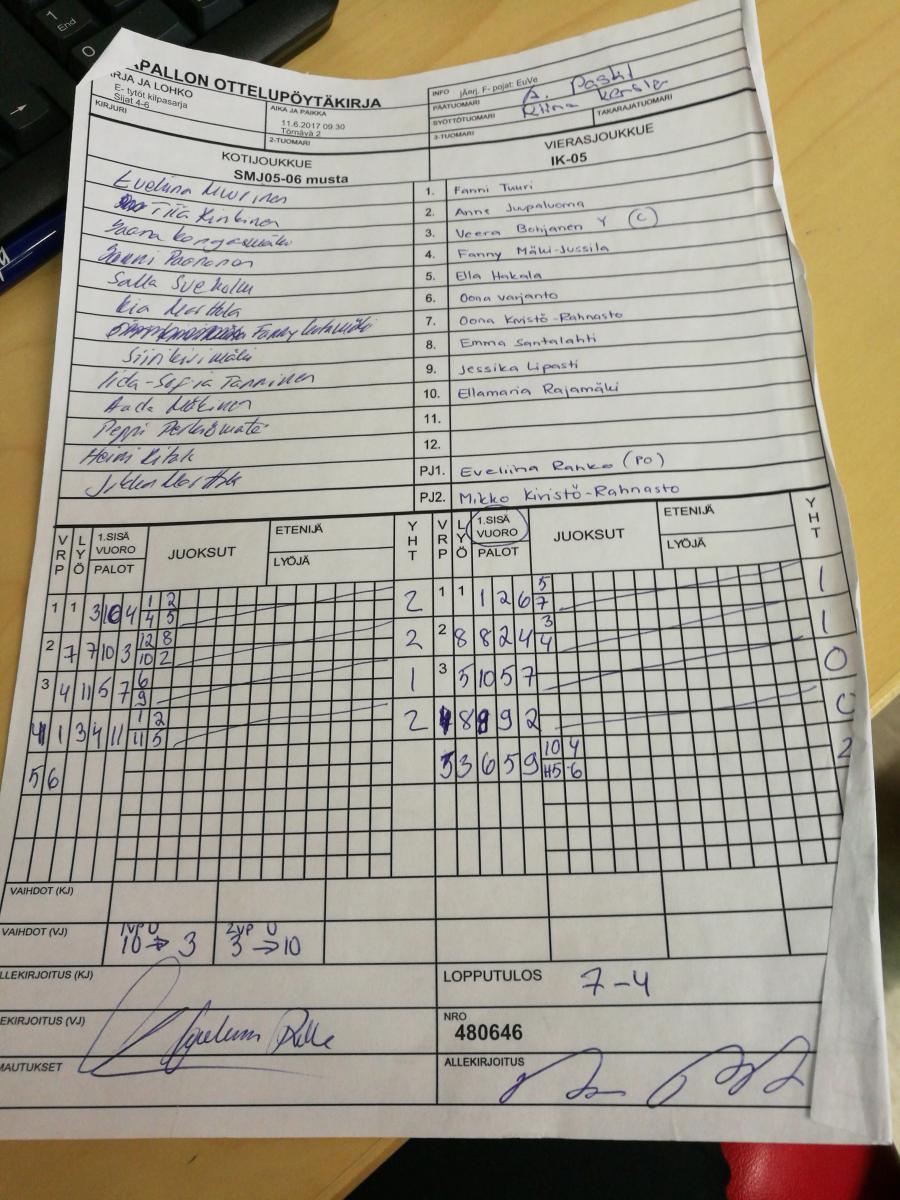 PALLON OTTELUPÖYTÄKIRJA
RJA JA LOHKO
E- tytöt kilpasarja
Sijat 4-6
KIRJURI
AIKA JA PAIKKA
11.6.2017 09:30
Törnävä 2
2-TUOMARI
INFO jÄrj. F- pojat: EuVe
PÄÄTUOMARI A.
SYÖTTÖTUOMARI Riina
TAKARAJATUOMARI
3-TUOMARI
KOTIJOUKKUE
SMJ05-06 musta
VIERASJOUKKUE
IK-05
Eveliina Muurinen
1. Fanni Tuuri
Tiia
2. Anne Juupaluoma
3. Veera Bohjanen Y C
4. Fanny Mäki-Jussila
Salla
5. Ella Hakala
Kia Marttila
6. Oona Varjanto
Fanny
7. Oona Kivistö-Rahnasto
Siiri Kivimäki
8. Emma Santalahti
Iida-Sofia Tanninen
9. Jessika Lipasti
Aada Mäkinen
10. Ellamaria Rajamäki
Peppi
11.
12.
PJ1. Eveliina Ranko (PO)
Marttila
PJ2. Mikko Kivistö-Rahnasto
VRP LYÖ 1.SISÄ VUORO PALOT JUOKSUT ETENIJÄ LYÖJÄ YHT
VRP LYÖ 1.SISÄ VUORO PALOT JUOKSUT ETENIJÄ LYÖJÄ YHT
1 1 3 10 4 1 2 2
4 5
1 1 1 2 6 5 1
7
2 7 7 10 3 12 8 2
10 2
2 8 8 2 4 3 1
4
3 4 11 5 7 6 1
9
3 5 10 5 7 0
4 1 3 4 11 1 2 2
11 5
4 8 8 9 2 0
5 6
5 3 6 5 9 10 4 2
5 6
VAIHDOT (KJ)
VAIHDOT (VJ) 1VP U 10 → 3 2VP U 3 → 10
LLEKIRJOITUS (KJ)
LOPPUTULOS 7-4
EKIRJOITUS (VJ)
NRO
480646
MAUTUKSET
ALLEKIRJOITUS